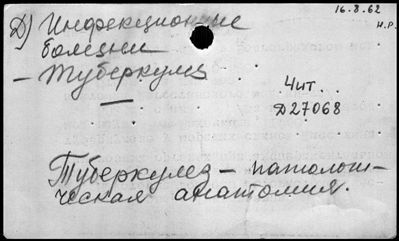 16.8.62
Н.Р.
Д) Инфекционные
болезни
— Туберкулез
—
Чит.
Д27068
Туберкулез — патологи-
ческая анатомия.